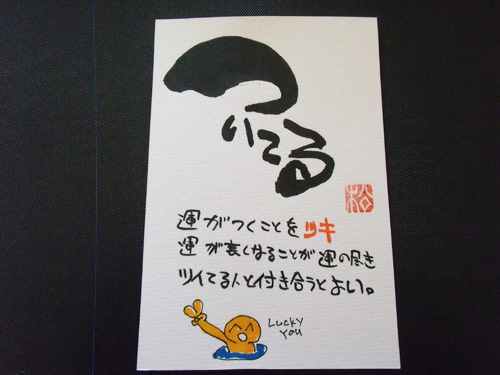 ついてる
運がつくことをツキ
運が衰くなることが運の尽き
ツイてる人と付き合うとよい。
LUCKY
YOU